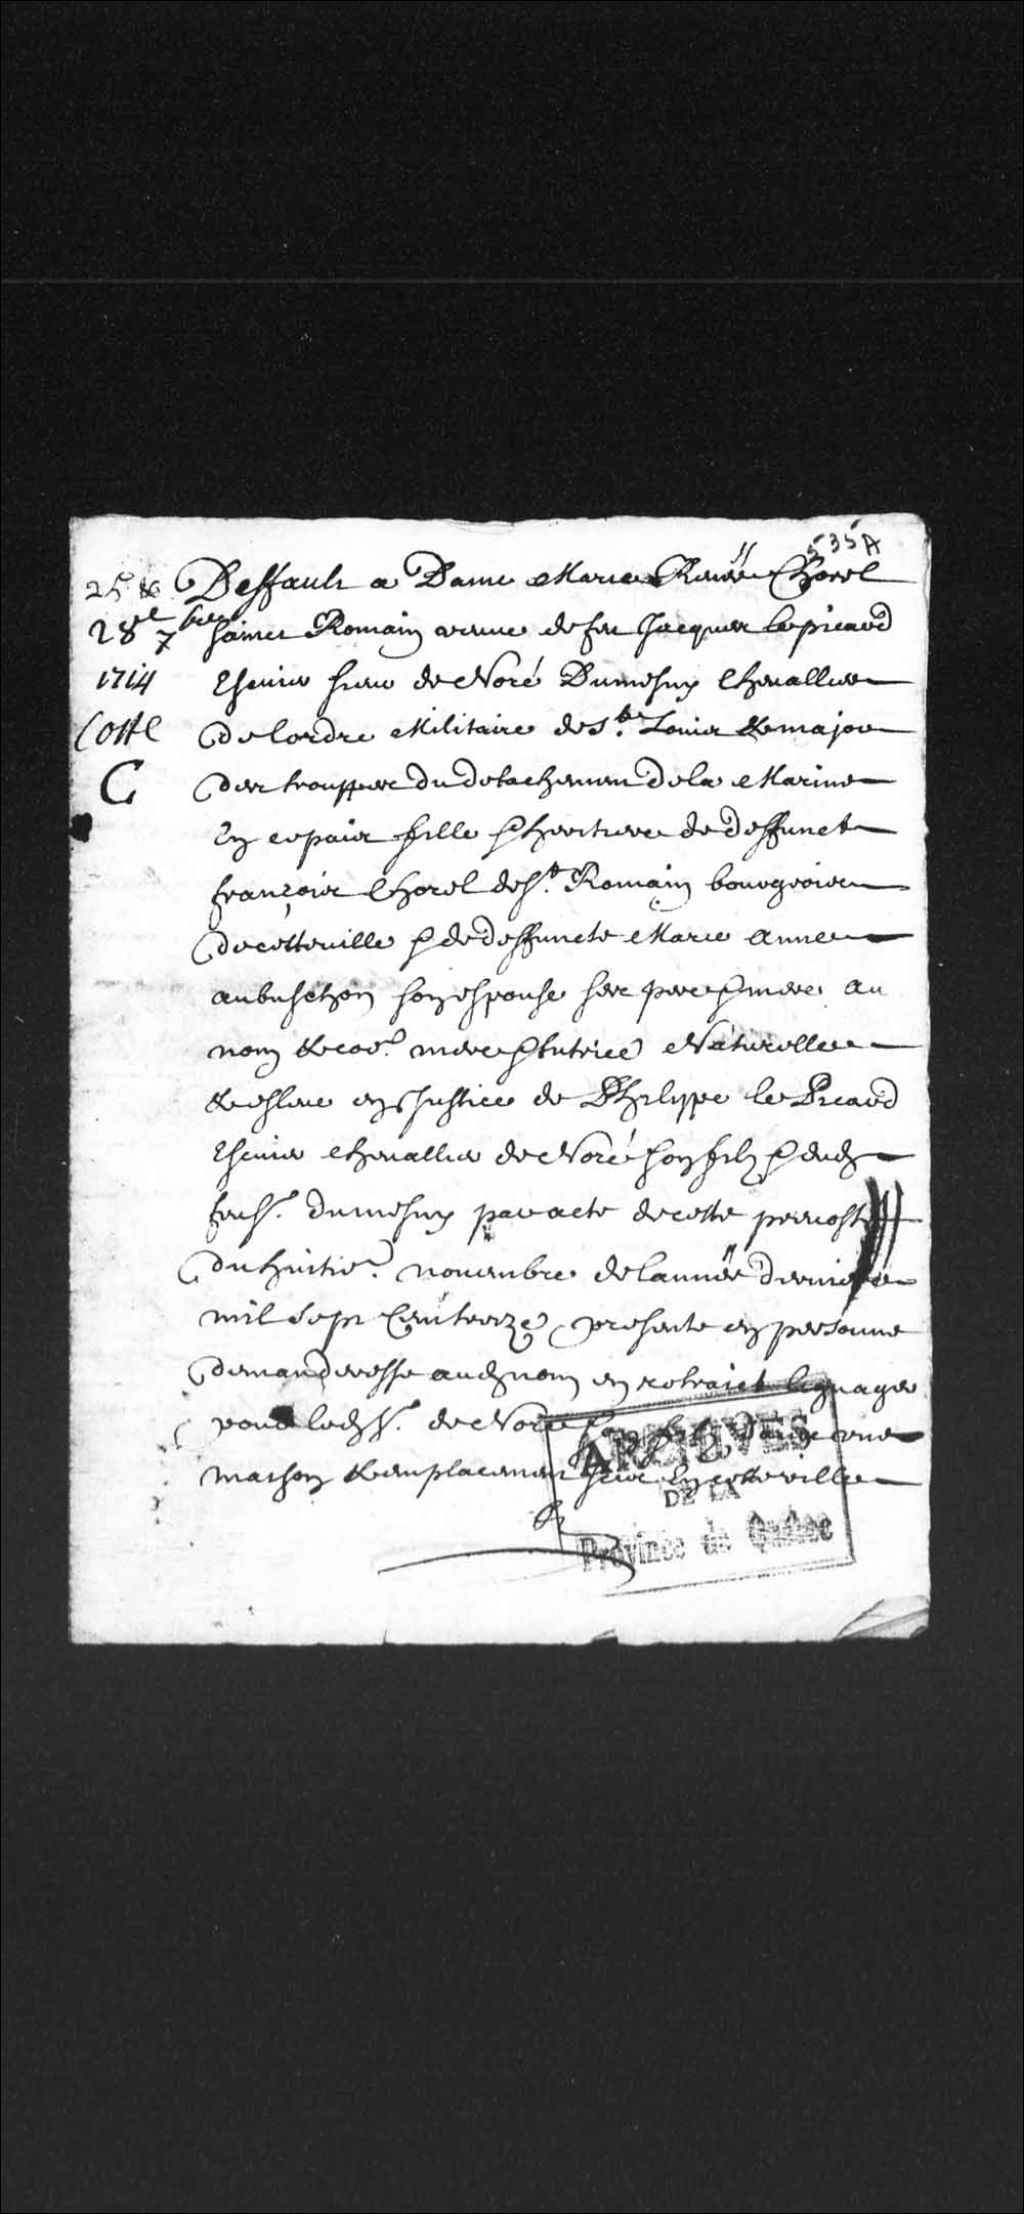 535A
25 8e Deffault a Dame Marie Renée Chorel
28e 7bre sainct Romain veuve de feu Jacques le picard
1714 Escuier sieur de Noré Dumesny Chevallier
Cotté de lordre Militaire de St. Louis & major
C des trouppes du detachement de la Marine
En ce païs fille & heritiere de deffunct
françois Chorel de St. Romain bourgeois
de cette ville & de deffuncte Marie Anne
aubuschon son espouse ses pere & mere au
nom & co͞e mere & tutrice Naturelle
& esleue en Justice de Philippe le Picard
Escuier chevallier de Noré son filz & dud
feu Sr. dumesny par acte de cette prevosté
du huictie. novembre de lannée derniere
mil sept Cent treize presente en personne
demanderesse aud nom en retraict lignager
pour led Sr. de Noré son filz dune
maison & emplacement scize En cette ville
ARCHIVES
DE LA
Province de Québec